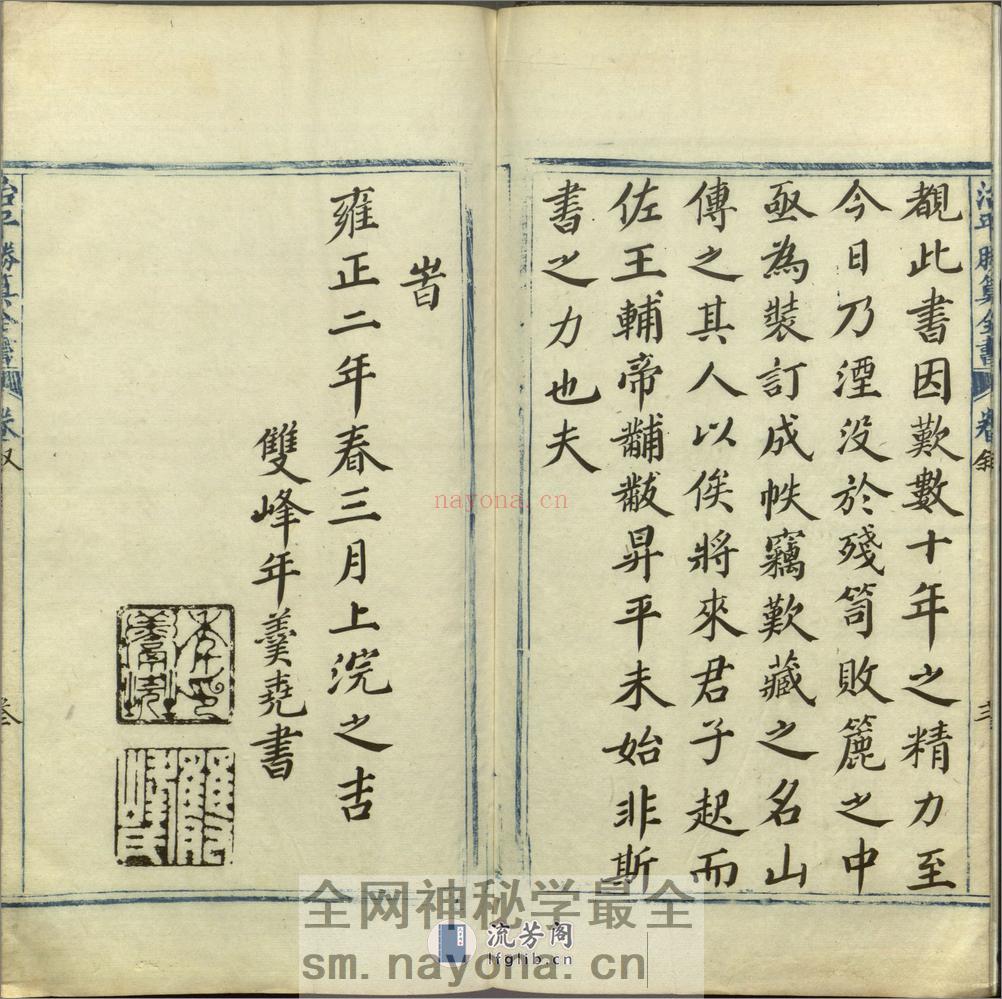 治平勝算全書 卷 敘 三
覩此書因歎數十年之精力至
今日乃湮没於殘笥敗簏之中
亟為裝訂成帙竊歎藏之名山
傳之其人以俟將來君子起而
佐王輔帝黼黻昇平未始非斯
書之力也夫
旹
雍正二年春三月上浣之吉
雙峰年羹堯書
年羹堯印
治平勝算全書 卷 叙
nayona.cn
全网神秘学最全
流芳阁
lfglib.cn
sm.nayona.cn